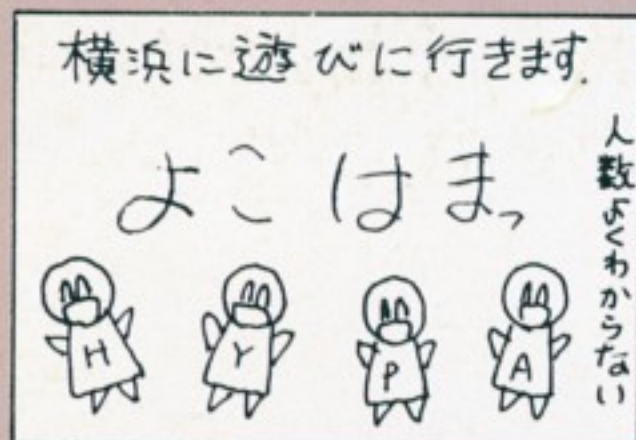 横浜に遊びに行きます.
よこはまっ
人数よくわからない
H Y P A